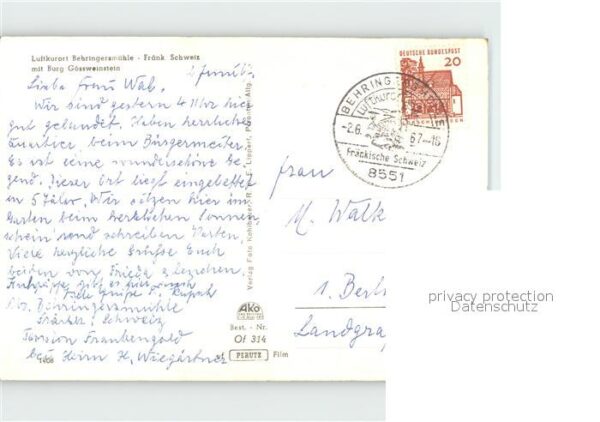 Luftkurort Behringersmühle - Fränk Schweiz
mit Burg Gössweinstein
2 Juni 67.
Liebe Frau Wal.
Wir sind gestern 4 Uhr hier
gut gelandet. Haben herrliches
Quartier, beim Bürgermeister.
Es ist eine wunderschöne Ge
gend. Dieser Ort liegt eingebettet
in 5 Täler. Wir sitzen hier im
Garten beim herrlichen Sonnen
schein und schreiben Karten.
Viele herzliche Grüsse Euch
beiden von Frieda
gibt es hier
Viele Grüße
Behringersmühle
Schweiz
Pension Frankengold
bei Herrn H. Wiegärtner
1408
Verlag Foto Kahlbauer
AKO
Best.-Nr.
Of 314
PERUTZ Film
DEUTSCHE BUNDESPOST
20
BEHRING
Luftkurort
-2.6. 67-16
Fränkische Schweiz
8551
Frau
M. Walk
1. Berl
Landgra
privacy protection
Datenschutz